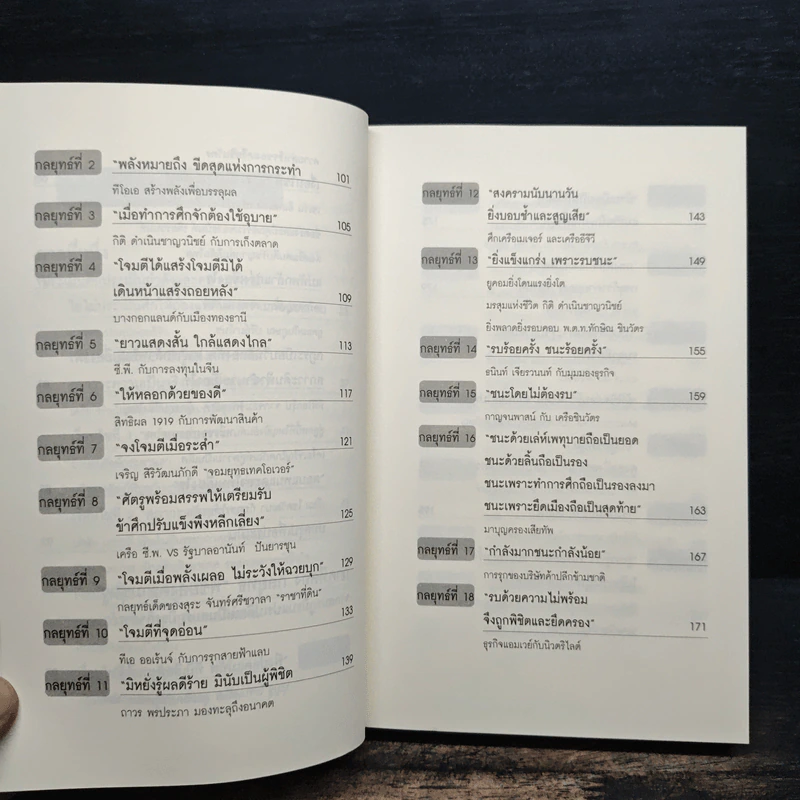 กลยุทธ์ที่ 2 "พลังหมายถึง ขีดสุดแห่งการกระทำ 101
ทีโอเอ สร้างพลังเพื่อบรรลุผล
กลยุทธ์ที่ 3 "เมื่อทำการศึกจักต้องใช้อุบาย" 105
กิติ ดำเนินชาญวนิชย์ กับการเก็งตลาด
กลยุทธ์ที่ 4 "โจมตีได้แสร้งโจมตีมิได้
เดินหน้าแสร้งถอยหลัง" 109
บางกอกแลนด์กับเมืองทองธานี
กลยุทธ์ที่ 5 "ยาวแสดงสั้น ใกล้แสดงไกล" 113
ซี.พี. กับการลงทุนในจีน
กลยุทธ์ที่ 6 "ให้หลอกด้วยของดี" 117
สิทธิผล 1919 กับการพัฒนาสินค้า
กลยุทธ์ที่ 7 "จงโจมตีเมื่อระส่ำ" 121
เจริญ สิริวัฒนภักดี "จอมยุทธเทคโอเวอร์"
กลยุทธ์ที่ 8 "ศัตรูพร้อมสรรพให้เตรียมรับ
ข้าศึกปรับแข็งพึงหลีกเลี่ยง" 125
เครือ ซี.พ. VS รัฐบาลอานันท์ ปันยารชุน
กลยุทธ์ที่ 9 "โจมตีเมื่อพลั้งเผลอ ไม่ระวังให้ฉวยบุก" 129
กลยุทธ์เด็ดของสุระ จันทร์ศรีชวาลา "ราชาที่ดิน"
กลยุทธ์ที่ 10 "โจมตีที่จุดอ่อน" 133
ทีเอ ออเร้นจ์ กับการรุกสายฟ้าแลบ
กลยุทธ์ที่ 11 "มิหยั่งรู้ผลดีร้าย มินับเป็นผู้พิชิต 139
ถาวร พรประภา มองทะลุถึงอนาคต
กลยุทธ์ที่ 12 "สงครามนับนานวัน
ยิ่งบอบช้ำและสูญเสีย" 143
ศึกเครือเมเจอร์ และเครืออีจีวี
กลยุทธ์ที่ 13 "ยิ่งแข็งแกร่ง เพราะรบชนะ" 149
ยูคอมยิ่งโดนแรงยิ่งโต
มรสุมแห่งชีวิต กิติ ดำเนินชาญวนิชย์
ยิ่งพลาดยิ่งรอบคอบ พ.ต.ท.ทักษิณ ชินวัตร
กลยุทธ์ที่ 14 "รบร้อยครั้ง ชนะร้อยครั้ง" 155
ธนินท์ เจียรวนนท์ กับมุมมองธุรกิจ
กลยุทธ์ที่ 15 "ชนะโดยไม่ต้องรบ" 159
กาญจนพาสน์ กับ เครือชินวัตร
กลยุทธ์ที่ 16 "ชนะด้วยเล่ห์เพทุบายถือเป็นยอด
ชนะด้วยลิ้นถือเป็นรอง
ชนะเพราะทำการศึกถือเป็นรองลงมา
ชนะเพราะยึดเมืองถือเป็นสุดท้าย" 163
มาบุญครองเสียทัพ
กลยุทธ์ที่ 17 "กำลังมากชนะกำลังน้อย" 167
การรุกของบริษัทค้าปลีกข้ามชาติ
กลยุทธ์ที่ 18 "รบด้วยความไม่พร้อม
จึงถูกพิชิตและยึดครอง" 171
ธุรกิจแอมเวย์กับนิวตริไลต์